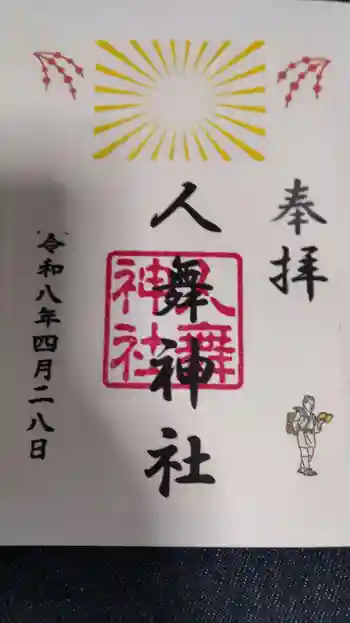 奉拝
人舞神社
人舞神社
令和八年四月二八日